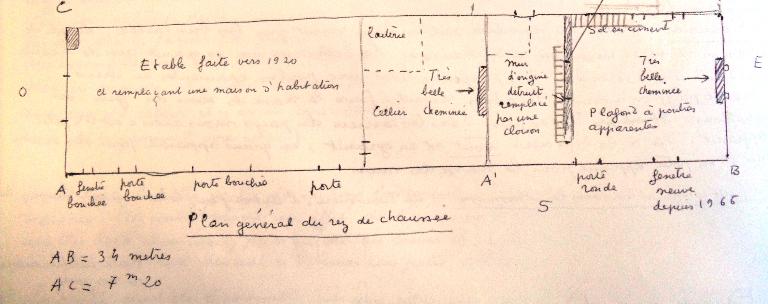 C
Etable faite vers 1920
et remplaçant une maison d'habitation
O
Laiterie
Cellier
Très
belle
cheminée
mur
d'origine
détruit
remplacé
par une
cloison
Sol en ciment
Très
belle
cheminée
Plafond à poutres
apparentes
E
A
fenetre
bouchée
porte
bouchée
porte bouchée
porte
A'
S
porte
ronde
fenetre
neuve
depuis 1966
B
Plan général du rez de chaussée
AB = 34 metres
AC = 7 m 20